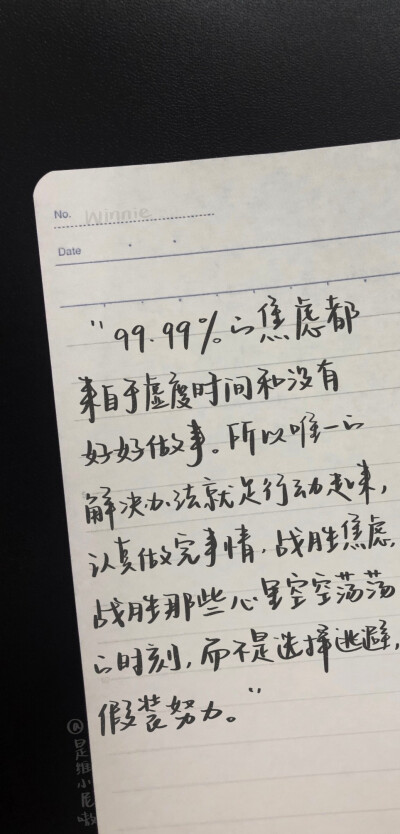 No. Winnie
Date
"99.99%的焦虑都
来自于虚度时间和没有
好好做事。所以唯一的
解决办法就是行动起来,
认真做完事情,战胜焦虑,
战胜那些心里空空荡荡
的时刻,而不是选择逃避,
假装努力。"